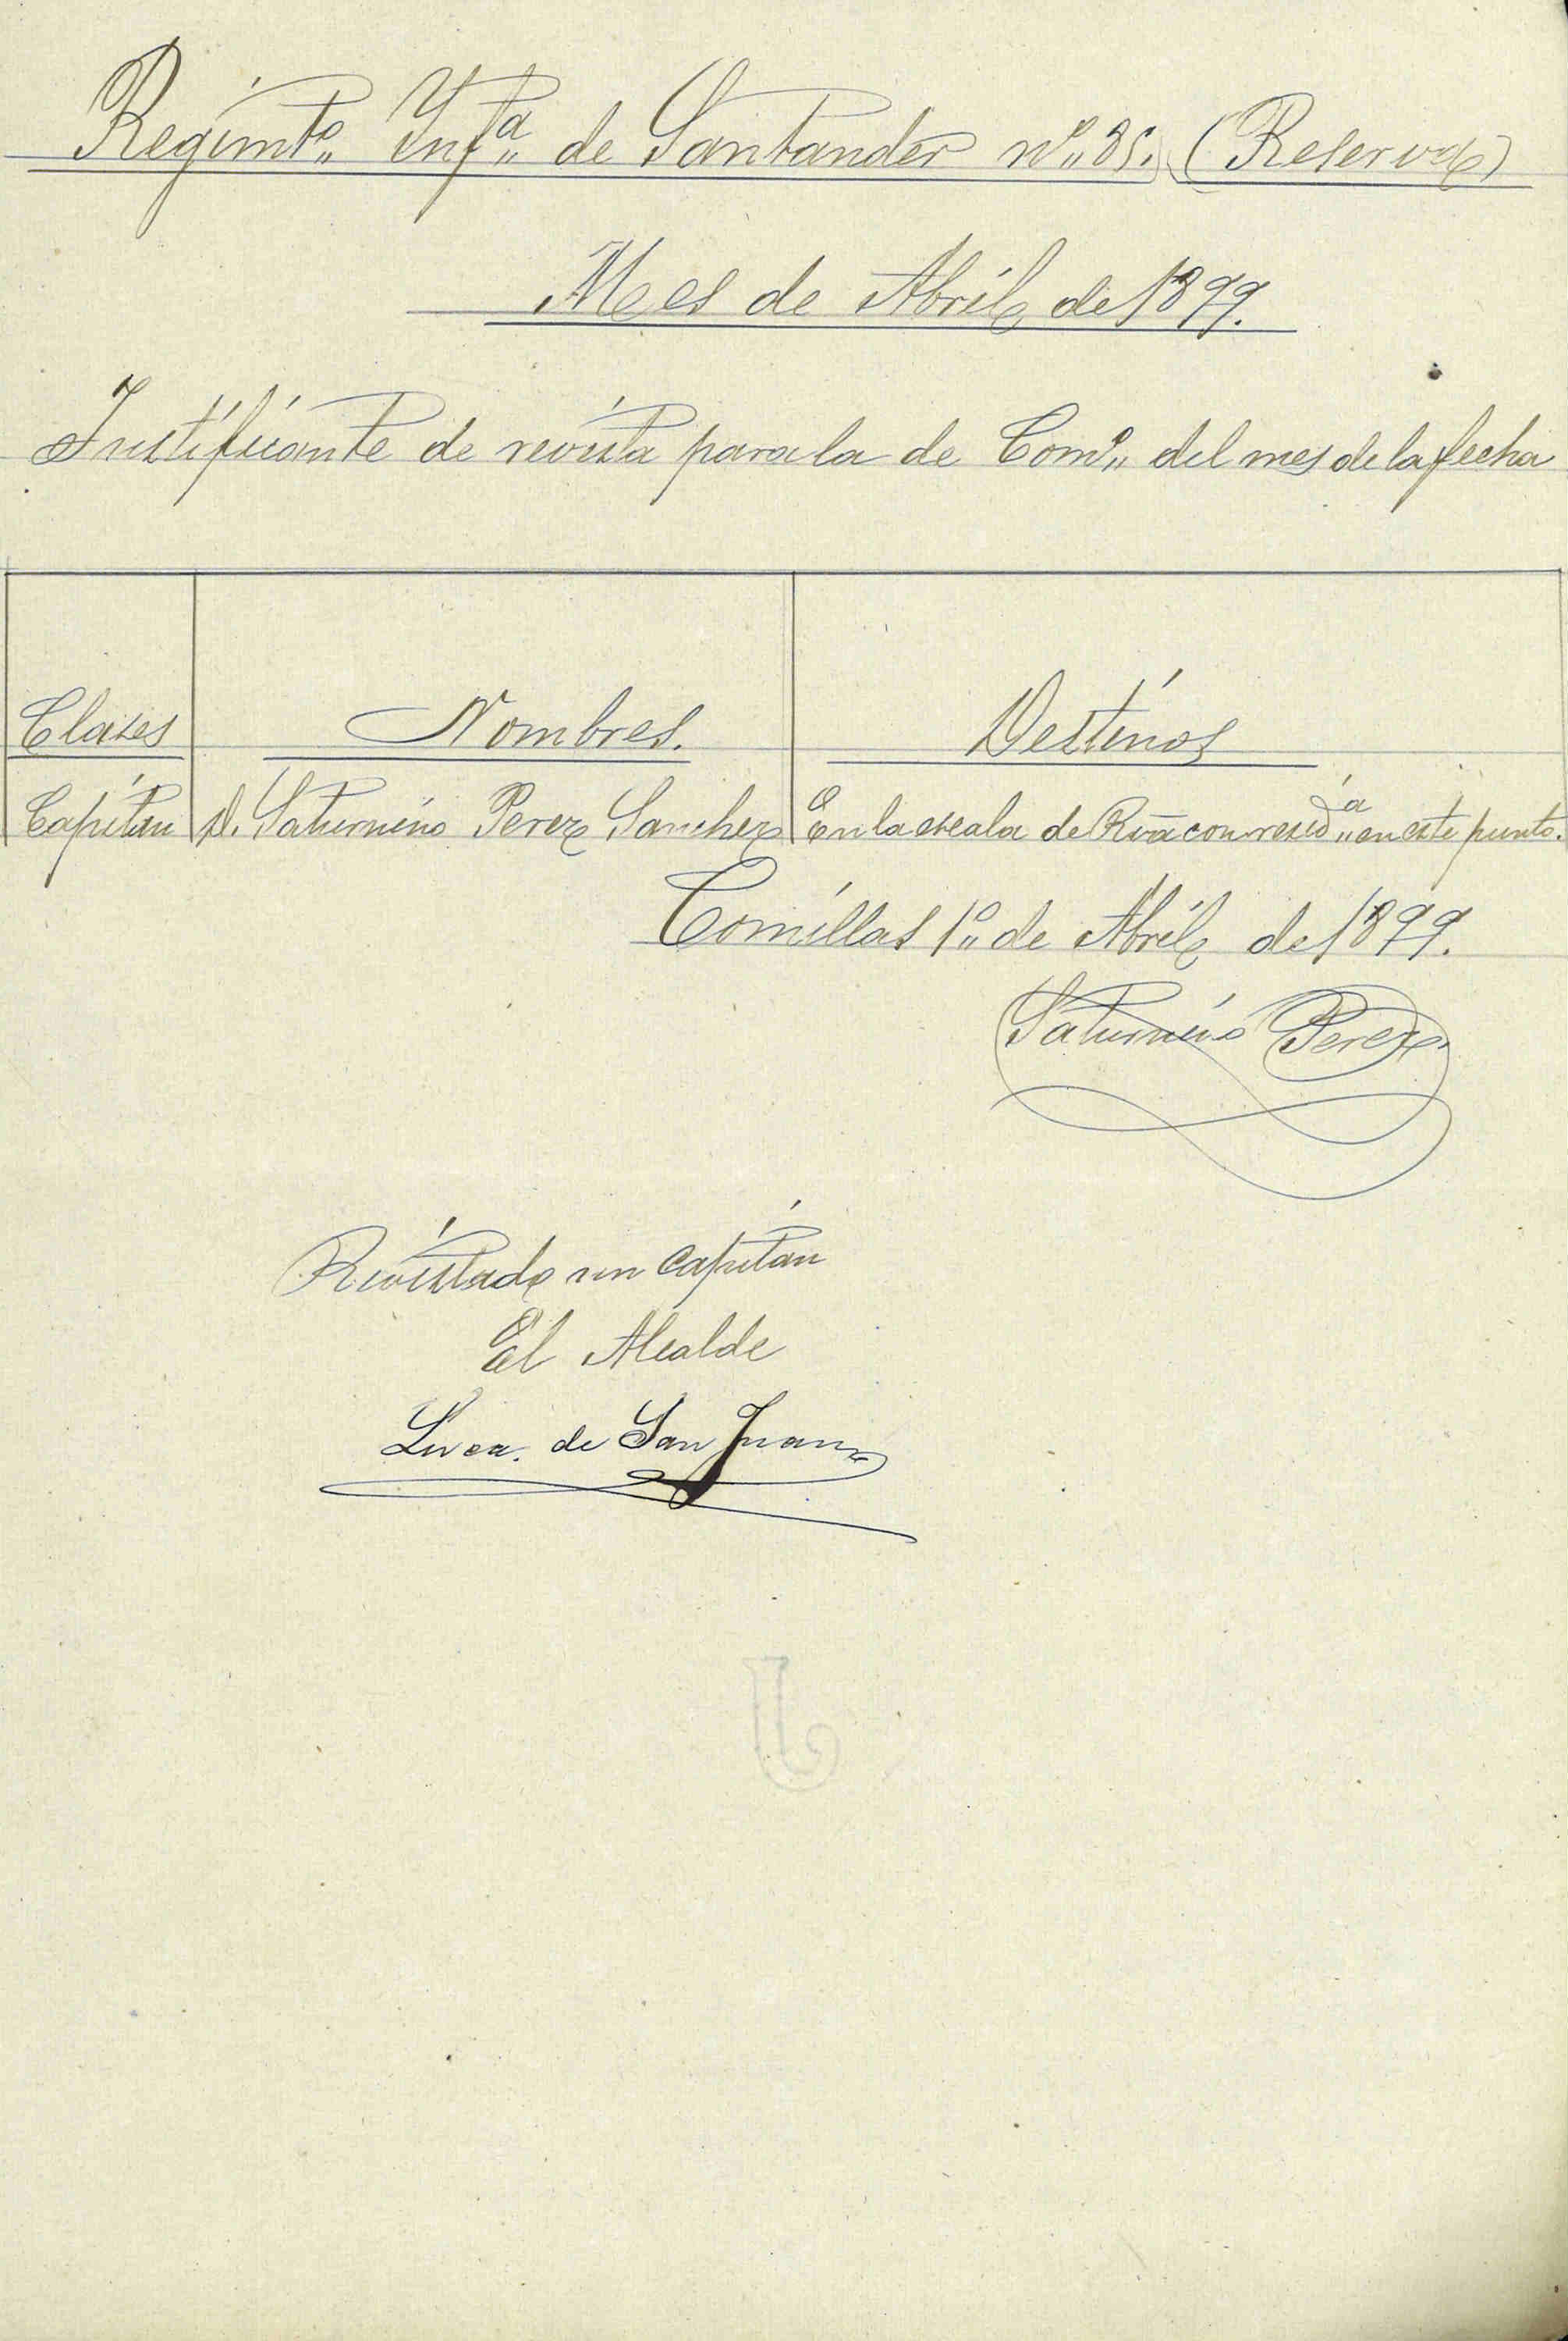 Regimto. Ynfa. de Santander nº 85. (Reserva)
Mes de Abril de 1899.
Justificante de revista para la de Como. del mes de la fecha
Clases Nombres. Destinos
Capitan D. Saturnino Perez Sanchez En la escala de Rva con resida. en este punto.
Comillas 1º de Abril de 1899.
Saturnino Perez
Revistado un capitan
El Alcalde
de San Juan